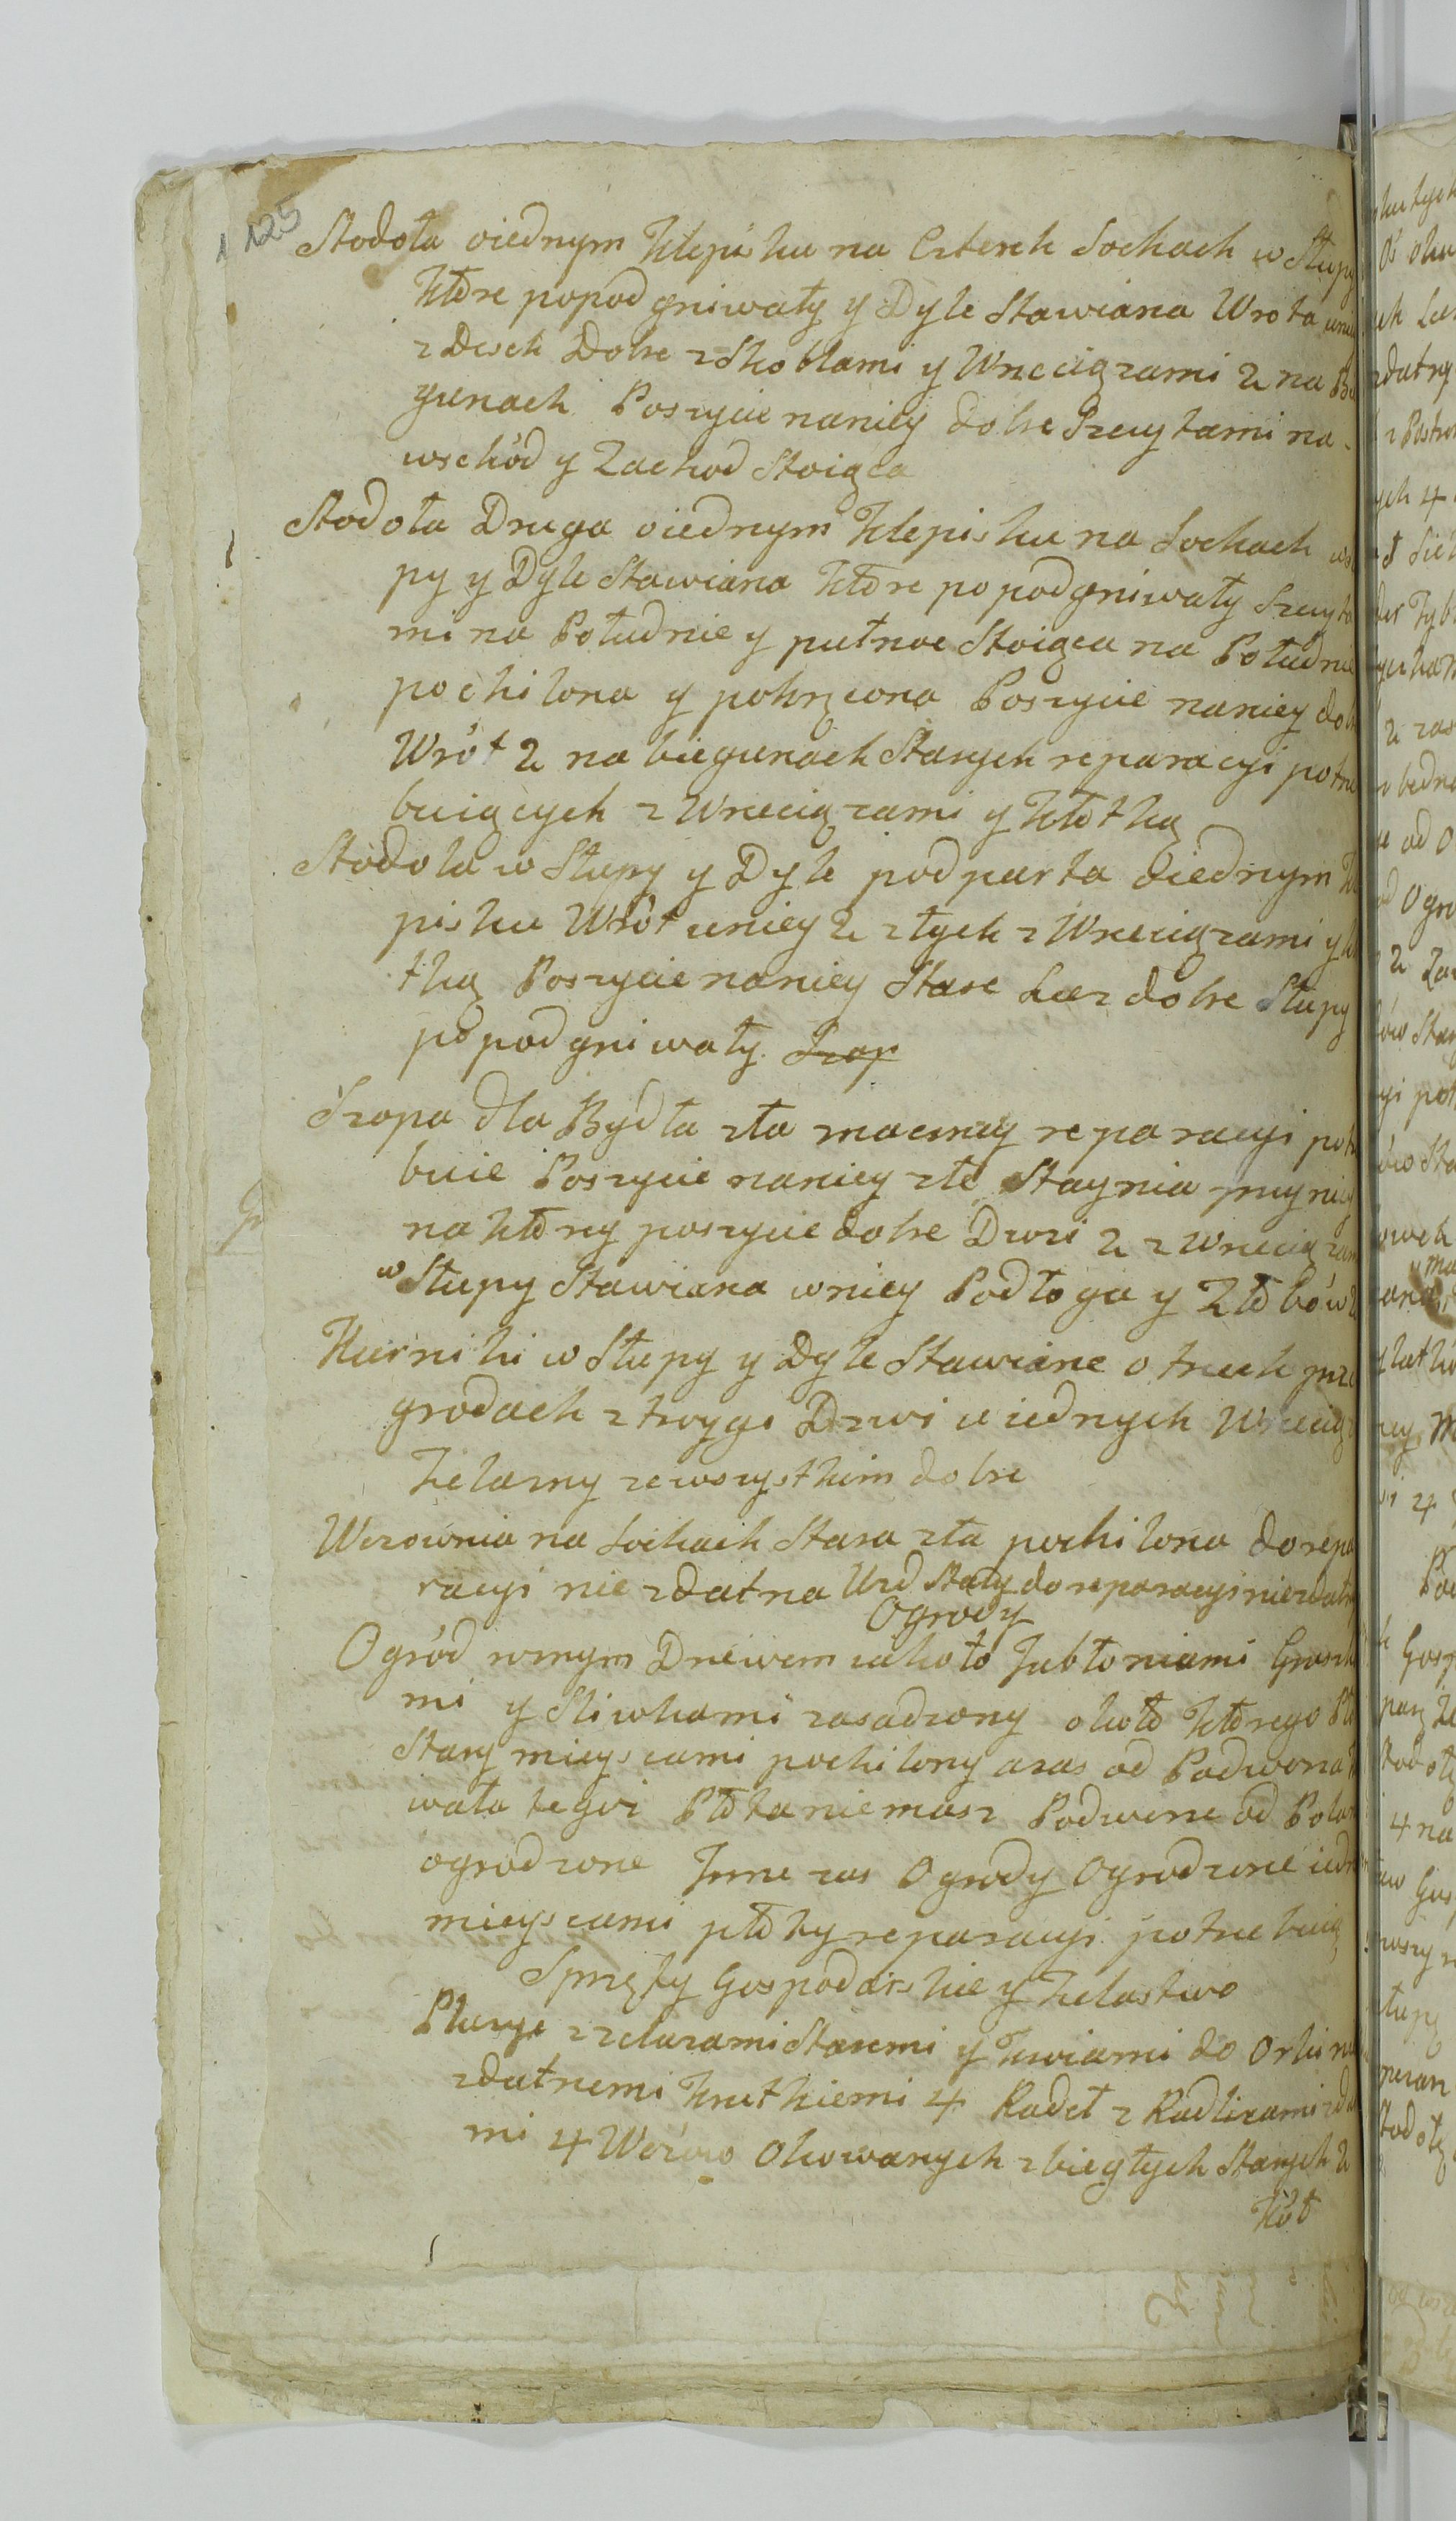 125
Stodoła oiednym Klepisku na Czterech Sochach w Słupy
Które popodgniwały y Dyle Stawiana Wrota
z Desek Dobre z Skoblami y Wrzeciązami 2 na Bie
gunach Poszycie naniey dobre Szczytami na
wschód y Zachod Stoiąca
Stodoła Druga oiednym Klepisku na Sochach
py y Dyle Stawiana Które popodgniwały Szczyta
mi na Południe y pułnoc Stoiąca na Południe
pochilona y pokrzcona Poszycie naniey dob
Wrót 2 na biegunach Starych reparacyi potrze
buiących z Wrzeciązami y Kłotką
Stodola w Słupy y Dyle podparta oiednym Kle
pisku Wrót uniey 2 złych z Wrzeciązami y
tką Poszycie naniey Stare Lecz dobre Słupy
popodgniwały. Szop
Szopa dla Bydła zła mocney reparacyi potrze
buie Poszycie naniey złe Staynia przyniey
na Którey poszycie dobre Drzwi 2 z wrzeciązam
w Słupy Stawiana wniey Podłoga y Złobów 2
Kurniki w Słupy y Dyle Stawiane o trzech prze
grodach z troygi Drzwi u iednych Wrzeciąz
Zelazny zewszystkim dobre
Wozownia na Sochach Stara zła pochilona do repa
racyi nie zdatna Wrd Stały do reparacyi niezdatn
Ogrody
Ogród roznym Drzewem iakoto Jabłoniami Gruszka
mi y Sliwkami zasadzony około Którego Pło
Stary mieyscami pochilony azas od Podworza
wała tegoz Płota niemasz Podworze od Pola
ogrodzone Jnne zas Ogrody Ogrodzone
mieyscami płoty reparacyi potrzebuią
Sprzęty Gospodarskie y Zelastwo
Pługi z zelazami Staremi y Krviami do Orki
zdatnemi Krutkiemi 4 Radeł z Radlicami zda
mi 4 Wozów Okowanych zbiegłych Starych 2
Kół